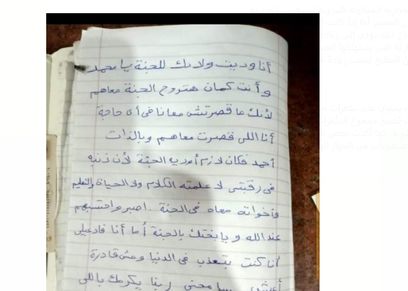 أنا وديت ولادك للجنة يا محمد
وأنت كمان هتروح الجنة معاهم
لأنك ما قصرتش معانا في أي حاجة
أنا اللي قصرت معاهم وبالذات
أحمد فكان لازم أوديه الجنة لأن ذنبه
في رقبتي لا علمته الكلام ولا الحياة والتعليم
وأخواته معاه في الجنة اصبر واحتسبهم
عند الله ويا بختك بالجنة أما أنا فادعيلي
أنا كنت بتعذب في الدنيا ومش قادرة
سامحني ربنا يكرمك باللي